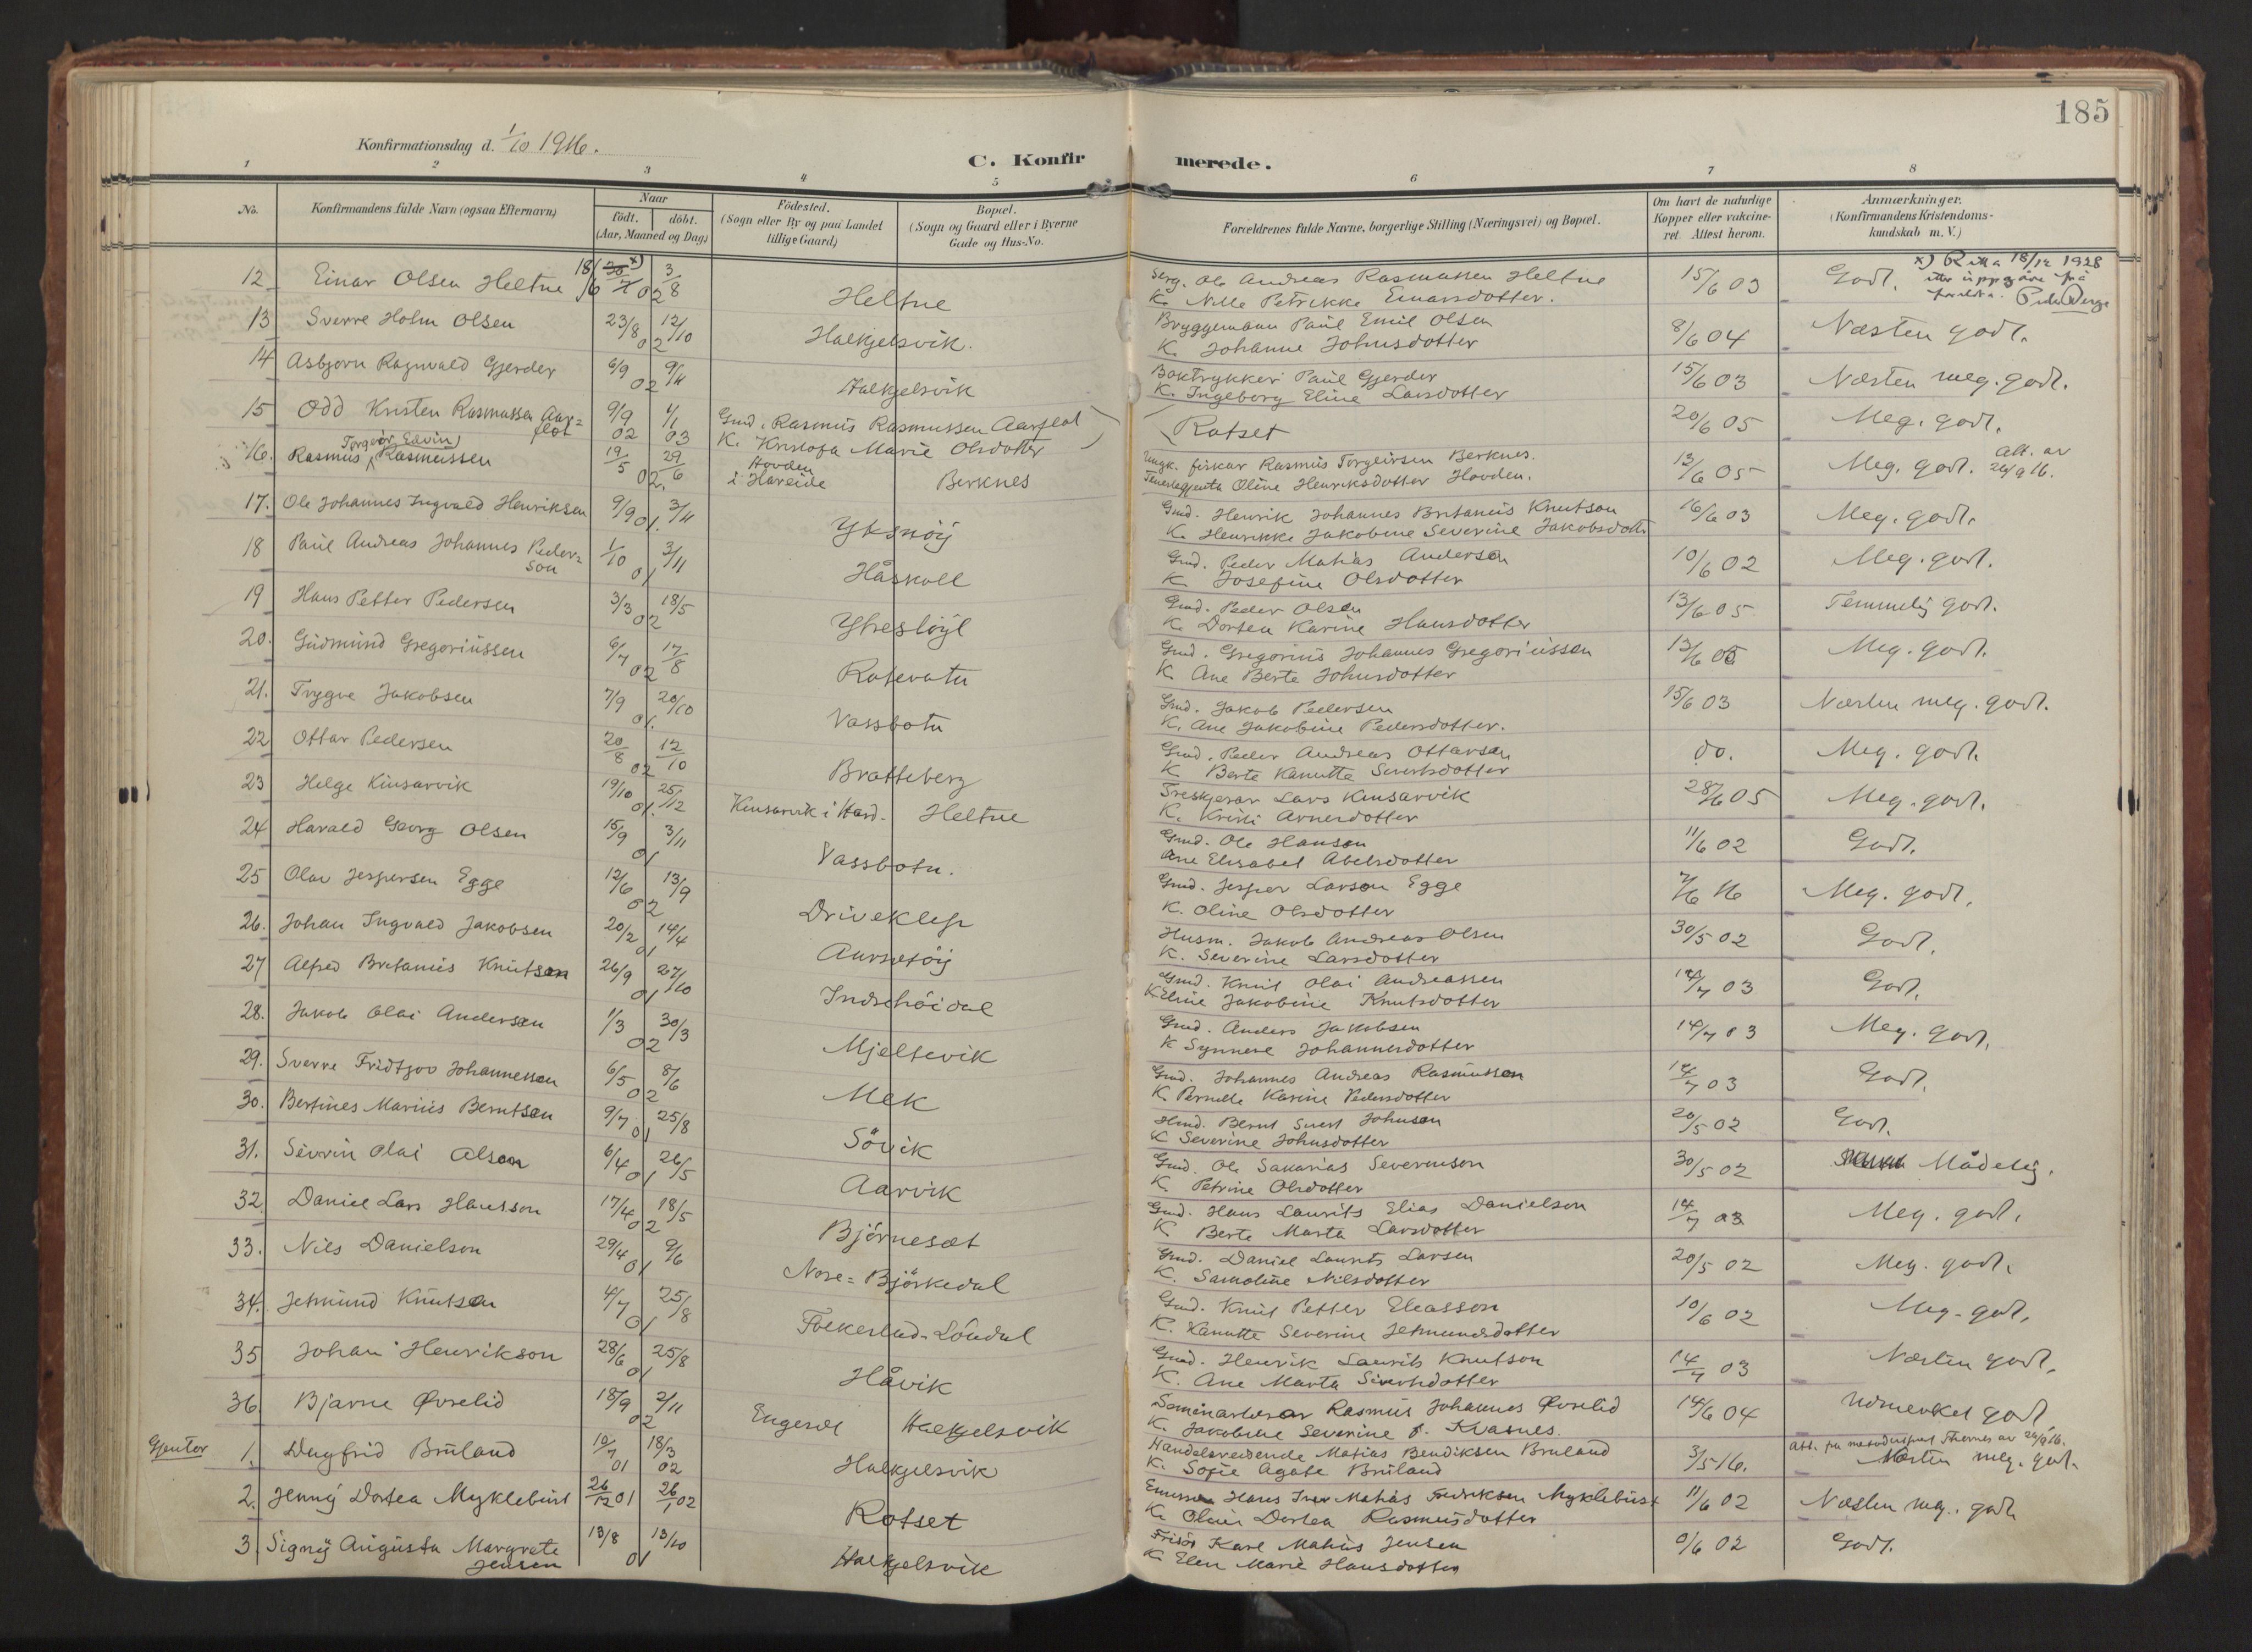 185
Konfirmationsdag d. 1/10 1916.
C. Konfirmerede.
1 2 3 4 5 6 7 8
No.
Konfirmandens fulde Navn (ogsaa Efternavn)
Naar
födt. döbt.
(Aar, Maaned og Dag)
Födested.
(Sogn eller By og paa Landet
tillige Gaard)
Bopæl.
(Sogn og Gaard eller i Byerne
Gade og Hus-No.
Forældrenes fulde Navne, borgerlige Stilling (Næringsvei) og Bopæl.
Om havt de naturlige
Kopper eller vakcine-
ret. Attest herom.
Anmærkninger.
(Konfirmandens Kristendoms-
kundskab m. V.)
12 Einar Olsen Heltne 18/6 02 3/8 Heltne Serg. Ole Andreas Rasmussen Heltne
K. Nille Petrikke Einarsdotter. 15/6 03 Godt. x) Retta 18/12 1928
etter uppgåve frå
foreldra.
13 Sverre Holm Olsen 23/8 02 12/10 Halkjelsvik. Bryggemann Paul Emil Olsen
K. Johanne Johnsdotter 8/6 04 Næsten godt.
14 Asbjørn Ragnvald Gjerder 6/9 02 9/11 Halkjelsvik Boktrykker Paul Gjerder
K. Ingeborg Eline Larsdotter 15/6 03 Næsten meg. godt.
15 Odd Kristen Rasmussen Aar=
flot 9/9 02 1/1 03 Gmd. Rasmus Rasmussen Aarflot
K. Kristofa Marie Olsdotter Rotset 20/6 05 Meg. godt.
16. Rasmus Torgeir Edvin Rasmussen 19/5 02. 29/6 Hovden
i Hareide Berknes Ungk. fiskar Rasmus Torgeirsen Berknes.
Tenestegjenta Oline Henriksdotter Hovden. 13/6 05 Meg. godt. Att. av
26/9 16.
17. Ole Johannes Ingvald Henriksen 9/9 01. 3/11 Yksnöy Gmd. Henrik Johannes Britanius Knutson
K. Henrikke Jakobine Severine Jakobsdotter 16/6 03 Meg. godt.
18 Paul Andreas Johannes Peder=
son 1/10 01 3/11 Håskoll Gmd. Peder Matias Anderson
K Josefine Olsdotter 10/6 02 Meg. godt.
19 Hans Petter Pedersen 3/3 02 18/5 Yksslöyl Gmd. Peder Olsen
K. Dortea Karine Hansdotter 13/6 05 Temmelig godt.
20. Gudmund Gregoriussen 6/7 02 17/8 Ratevatn Gmd. Gregorius Johannes Gregoriussen
K. Ane Berte Johnsdotter 13/6 05 Meg. godt.
21. Trygve Jakobsen 7/9 01. 20/10 Vassbotn Gmd. Jakob Pedersen
K. Ane Jakobine Pedersdotter. 15/6 03 Næsten meg. godt.
22 Ottar Pedersen 20/8 02 12/10 Bratteberg Gmd. Peder Andreas Ottarsen
K Berte Kanutte Sivertsdotter do. Meg. godt.
23 Helge Kinsarvik 19/10 01. 25/12 Kinsarvik i Hard. Heltne Treskjerar Lars Kinsarvik
K. Kristi Arnesdotter 28/6 05 Meg. godt.
24 Harald Georg Olsen 15/9 01 3/11 Vassbotn. Gmd. Ole Hanson
Ane Elisabet Abelsdotter 11/6 02 Godt.
25 Olav Jespersen Egge 12/6 02 13/9 Driveklep Gmd. Jesper Larson Egge
K. Oline Olsdotter 7/6 16 Meg. godt.
26. Johan Ingvald Jakobsen 20/2 01 14/4 Aurstöy Husm. Jakob Andreas Olsen
K. Severine Larsdotter 30/5 02 Godt.
27 Alfred Britanius Knutson 26/9 01 27/10 Indrehöidal Gmd. Knut Olai Andreassen
K. Eline Jakobine Knutsdotter 14/7 03 Godt.
28. Jakob Olai Andersen 1/3 02 30/3 Mjeltevik Gmd. Anders Jakobsen
K Synneve Johannesdotter 14/7 03 Meg. godt.
29. Sverre Fridtjov Johannesson 6/5 02 8/6 Mek Gmd. Johannes Andreas Rasmussen
K. Pernille Karine Pedersdotter 14/7 03 Godt.
30. Bertines Marius Berntsen 9/7 01 25/8 Sövik Gmd. Bernt Sivert Johnson
K Severine Johnsdotter 20/5 02 Godt.
31. Sivrin Olai Olson 6/4 01 26/5 Aarvik Gmd. Ole Sakarias Severinson
K Petrine Olsdotter 30/5 02 Mådelig.
32. Daniel Lars Hansson 17/4 02 18/5 Björnesæt Gmd. Hans Laurits Elias Danielson
K Berte Marta Larsdotter 14/7 03 Meg. godt.
33. Nils Danielson 29/4 01 9/6 Nore=Björkedal Gmd. Daniel Laurits Larsen
K. Samoline Nilsdotter 20/5 02 Meg. godt.
34. Jetmund Knutson 4/7 01 25/8 Folkestad-Löndal Gmd. Knut Petter Eleasson
K. Kanutte Severine Jetmundsdotter 10/6 02 Meg. godt.
35 Johan Henrikson 28/6 01 25/8 Håvik Gmd. Henrik Laurits Knutson
K. Ane Marta Sivertsdotter 14/7 03 Næsten godt.
36. Bjarne Øvrelid 18/9 02 2/11 Engerdl Halkjelsvik Seminarlærar Rasmus Johannes Øvrelid
K. Jakobine Severine f. Kvasnes. 14/6 04 Udmerket godt.
Gjentor 1. Dagfrid Bruland 10/7 01 18/3 02 Halkjelsvik Handelsreisende Matias Bendiksen Bruland
K. Sofie Agate Bruland 3/5 16. Att. fra metodistprest Thernes av 29/9 16.
Næsten meg. godt.
2. Jenny Dortea Myklebust 26/12 01 26/1 02 Rotset Hans Iver Matias Fredriksen Myklebust
K. Olave Dortea Rasmusdotter 11/6 02 Næsten meg. godt
3. Signy Augusta Margrete
Jensen 13/8 01 13/10 Halkjelsvik Frisör Karl Matius Jensen
K. Elen Marie Hansdotter 9/6 02 Godt.